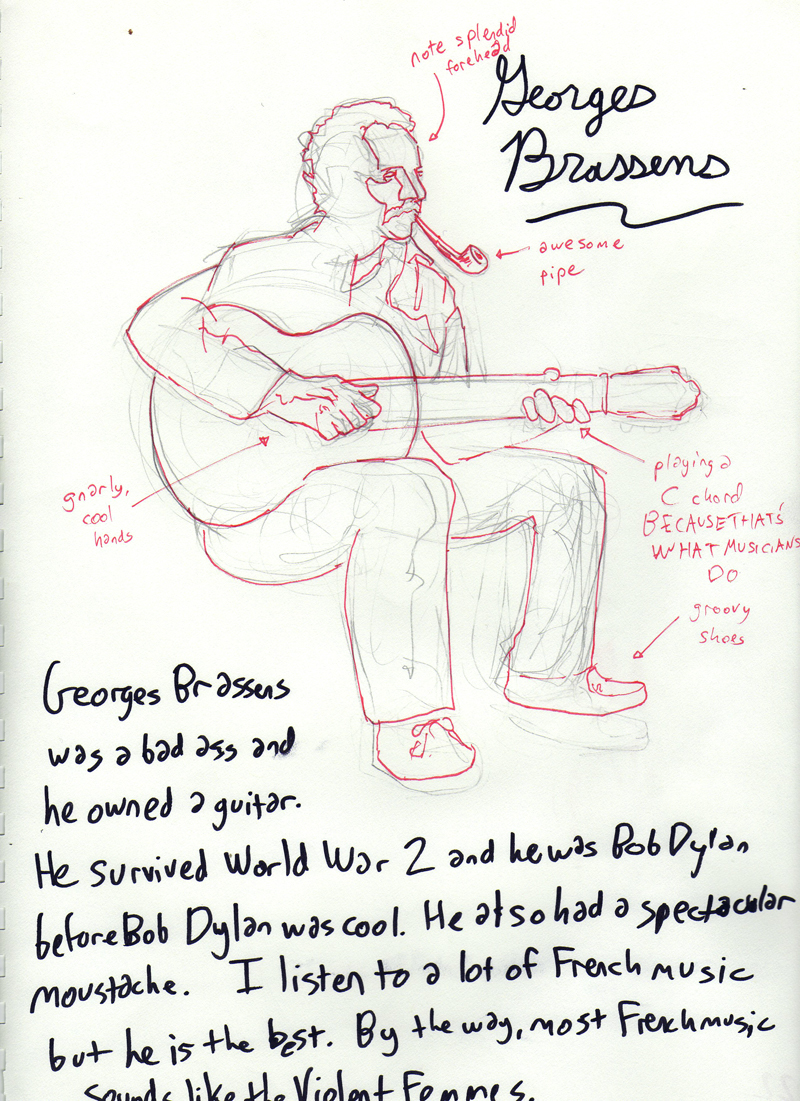 note splendid
forehead
Georges
Brassens
awesome
pipe
gnarly,
cool
hands
playing a
C chord
BECAUSE THAT'S
WHAT MUSICIANS
DO
groovy
shoes
Georges Brassens
was a bad ass and
he owned a guitar.
He survived World War 2 and he was Bob Dylan
before Bob Dylan was cool. He also had a spectacular
moustache. I listen to a lot of French music
but he is the best. By the way, most French music
sounds like the Violent Femmes.